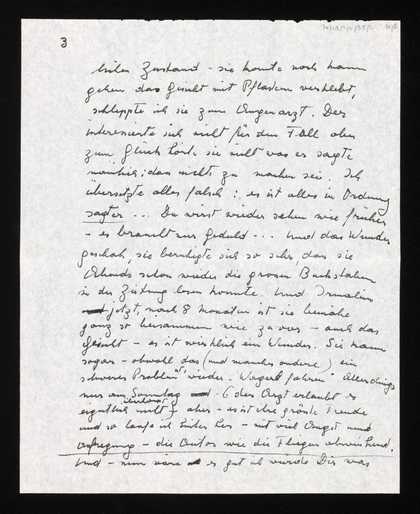 3
Zustand - sie konnte noch kaum
gehen das Gesicht mit Pflastern verklebt,
schleppte ich sie zum Augenarzt. Der
interessierte sich nicht für den Fall aber
zum Glück hörte sie nicht was er sagte
nämlich, dass nichts zu machen sei. Ich
übersetzte alles falsch: es ist alles in Ordnung
sagte er ... Du wirst wieder sehen wie früher
- es braucht nur Geduld - ... Und das Wunder
geschah, sie beruhigte sich so sehr, dass sie
Abends schon wieder die grossen Buchstaben
in der Zeitung lesen konnte. Und
jetzt, nach 8 Monaten ist sie beinahe
ganz so beisammen wie zuvor - auch das
Gesicht - es ist wirklich ein Wunder. Sie kann
sogar - obwohl das (und manches andere) ein
schweres Problem ist wieder Wagerl fahren. Allerdings
nur am Sonntag der Arzt erlaubt es
eigentlich nicht aber - es ist ihre grösste Freude
und so laufe ich hinter her - mit viel Angst und
Aufregung - die Autos wie die Fliegen abwehrend.
Und - nun wäre es gut ich würde Dir was